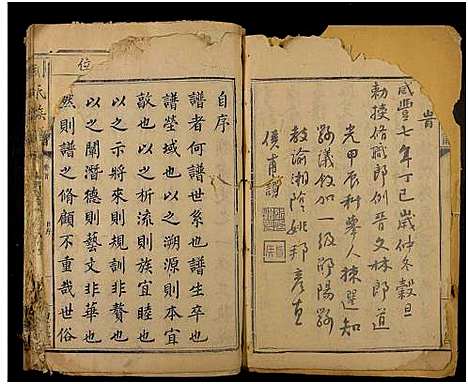 旹
咸豐七年丁巳歲仲冬穀旦
勅授修職郎例晉文林郎道
光甲辰科舉人揀選知
縣議敘加一級邵陽縣
教諭湘陰姚邦彥直
侯甫譔
自序
譜者何譜世系也譜生卒也
譜塋域也以之溯源則本宜
敬也以之析流則族宜睦也
以之示將來則規訓非贅也
以之闡潛德則藝文非華也
然則譜之脩顧不重哉世俗
位
氏族